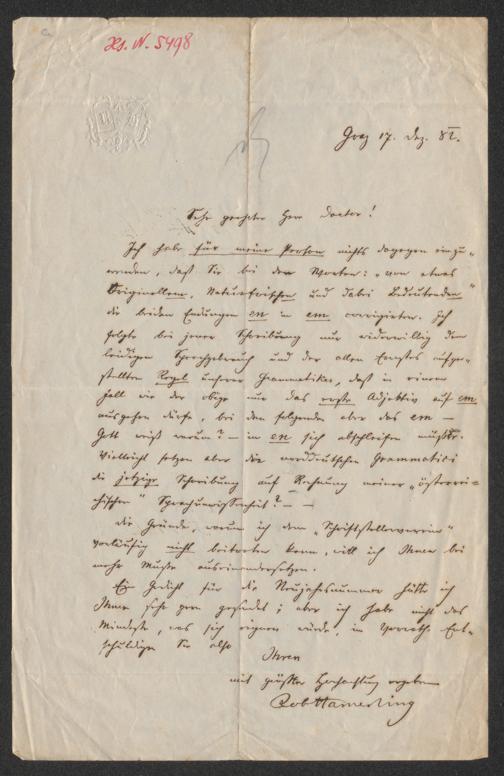 Hs. N. 5498
Graz 17. Dez. 82.
Sehr geehrter Herr Doctor!
Ich habe für meine Person nichts dagegen einzu-
wenden, daß Sie bei den Worten: „von etwas
Originellem, Naturfrischen und dabei Bedeutenden"
die beiden Endungen en in em corrigieren. Ich
folgte bei jener Schreibung nur widerwillig dem
leidigen Sprachgebrauch und der allen Ernstes aufge-
stellten Regel unserer Grammatiker, daß in einem
Fall wie der obige nur das erste Adjektiv auf em
ausgehen dürfe, bei den folgenden aber das em —
Gott weiß warum? — in en sich abschleifen müßte.
Vielleicht setzen aber die norddeutschen Grammatici
die jetzige Schreibung auf Rechnung meiner „österrei-
chischen" Sprachunwissenheit? — —
Die Gründe, warum ich dem „Schriftstellerverein"
vorläufig nicht beitreten kann, will ich Ihnen bei
mehr Muße auseinandersetzen.
Ein Gedicht für die Neujahrsnummer hätte ich
Ihnen sehr gern gesendet; aber ich habe nicht das
Mindeste, was sich eignen würde, in Vorrath. Ent-
schuldigen Sie also
Ihren
mit größter Hochachtung ergebenen
Rob Hamerling